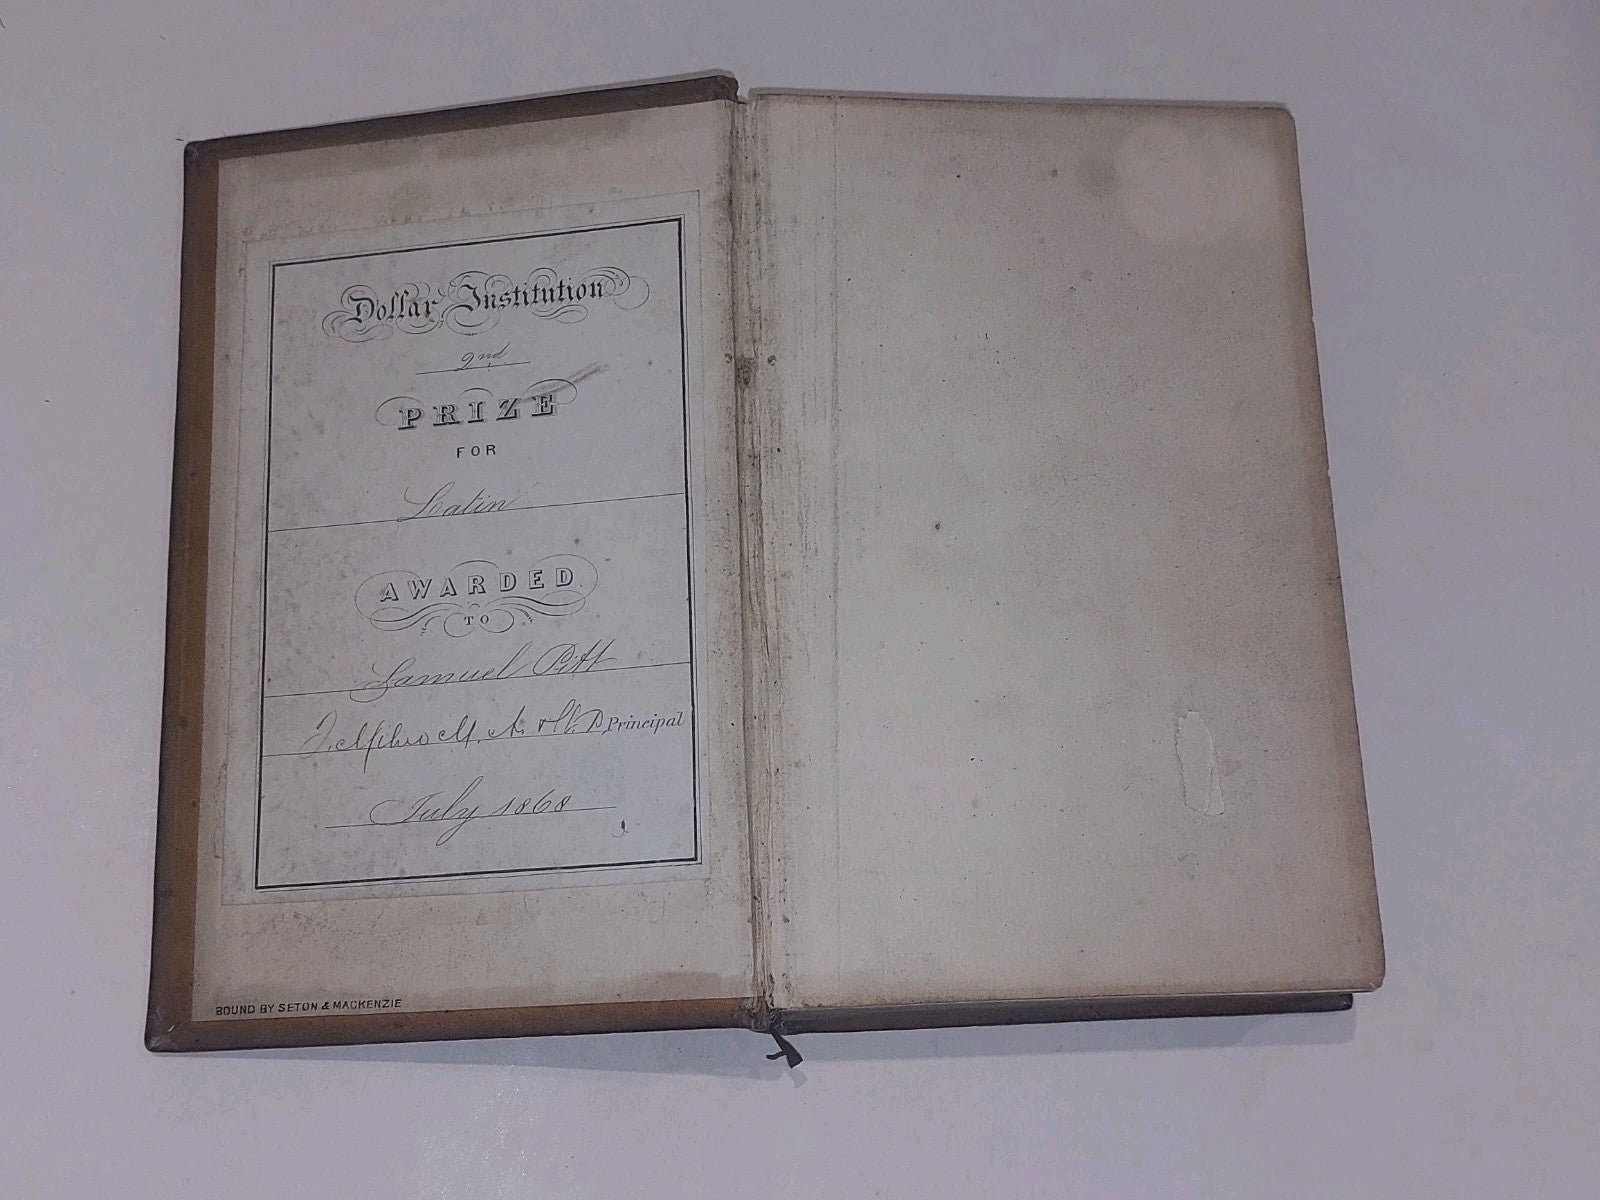 Dollar Institution
2nd
PRIZE
FOR
Latin
AWARDED
TO
Samuel Pitt
J. Milne M. A. & LL. D. Principal
July 1868
BOUND BY SETON & MACKENZIE